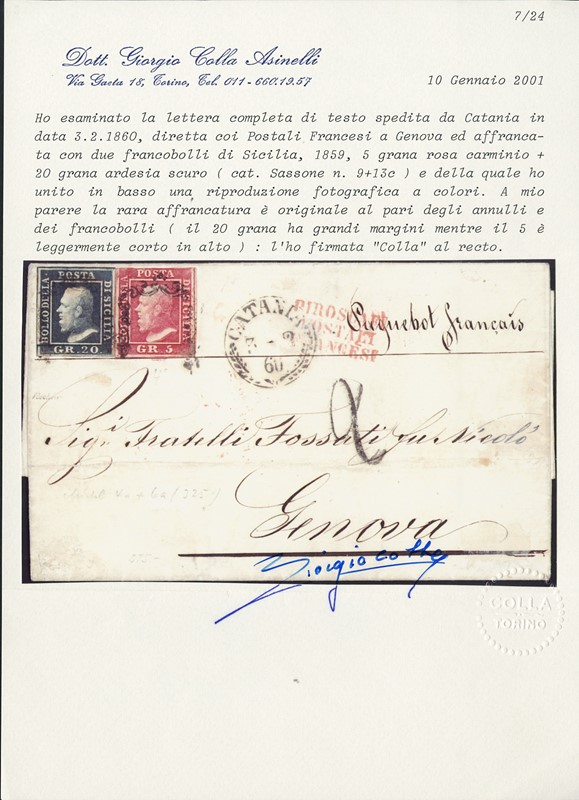 7/24
Dott. Giorgio Colla Asinelli
Via Gaeta 18, Torino, Tel. 011 - 660.19.57
10 Gennaio 2001
Ho esaminato la lettera completa di testo spedita da Catania in
data 3.2.1860, diretta coi Postali Francesi a Genova ed affranca-
ta con due francobolli di Sicilia, 1859, 5 grana rosa carminio +
20 grana ardesia scuro ( cat. Sassone n. 9+13c ) e della quale ho
unito in basso una riproduzione fotografica a colori. A mio
parere la rara affrancatura è originale al pari degli annulli e
dei francobolli ( il 20 grana ha grandi margini mentre il 5 è
leggermente corto in alto ) : l'ho firmata "Colla" al recto.
BOLLO DELLA POSTA DI SICILIA GR. 20
POSTA DI SICILIA GR. 5
CATANIA
3 - 2
60
PIROSCAFI
POSTALI
FRANCESI
Paquebot français
2
Sigi. Fratelli Fossati fu Nicolò
Genova
Giorgio Colla
COLLA
TORINO